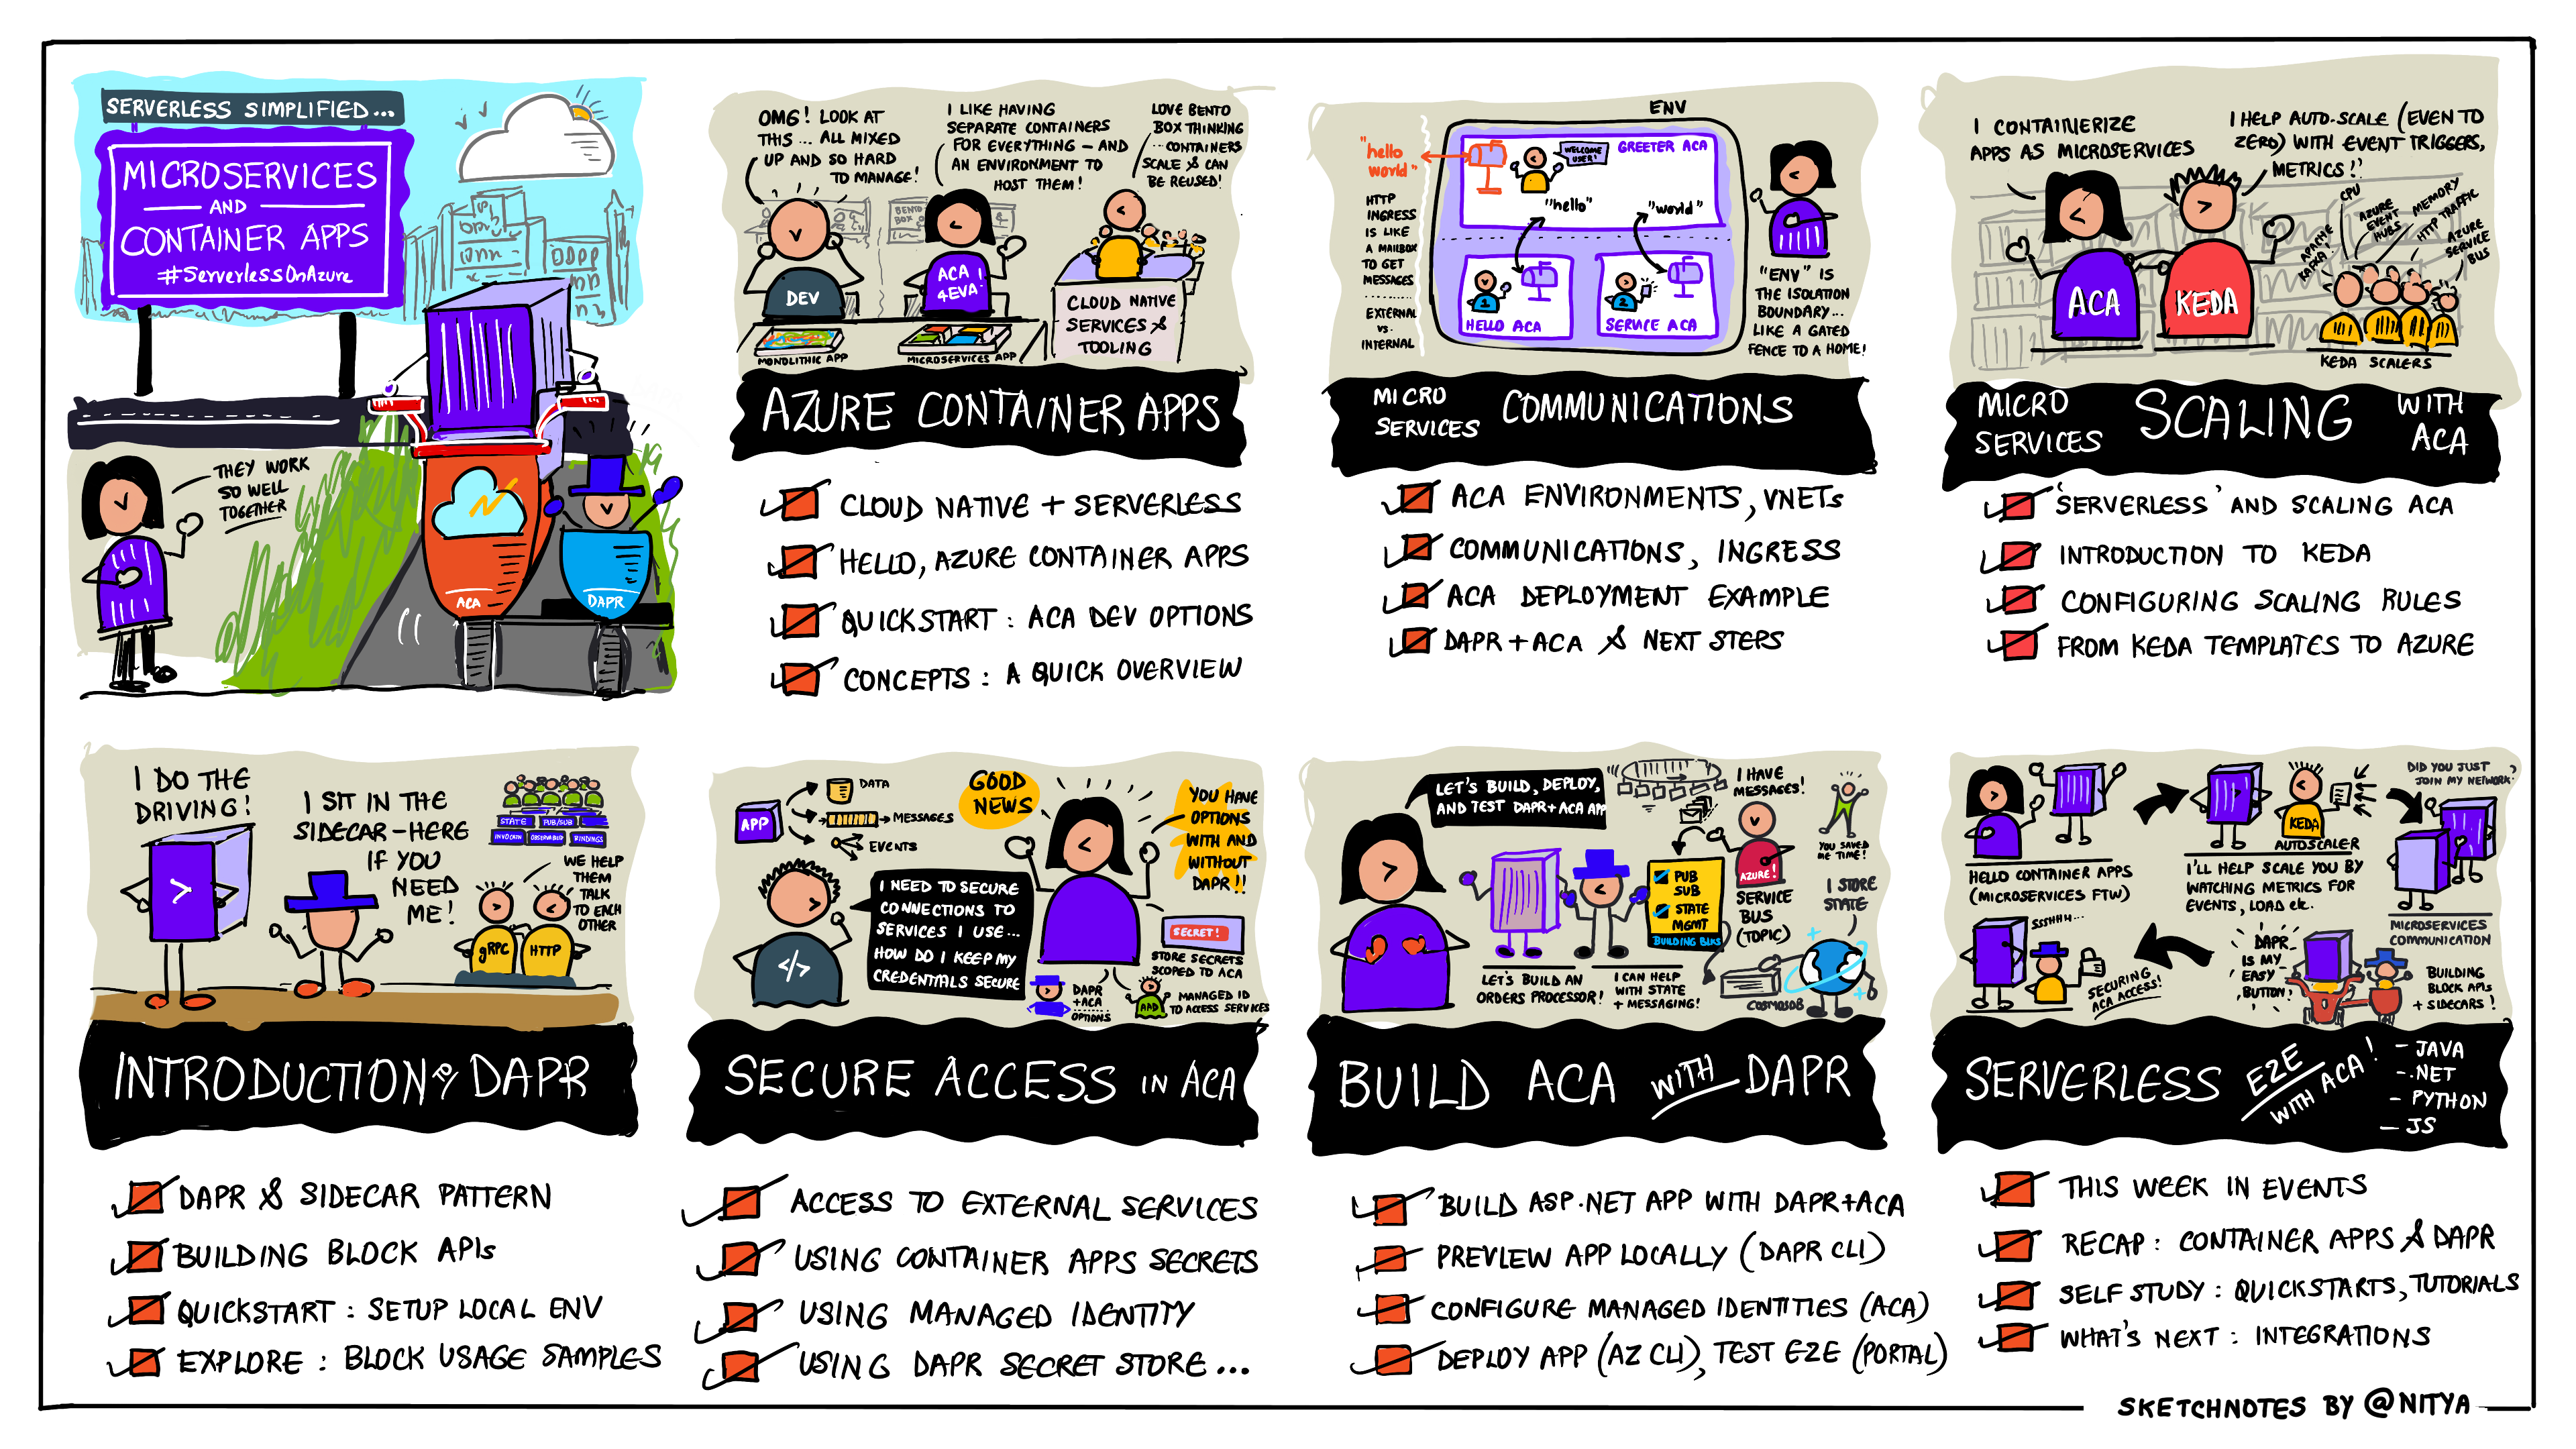 SERVERLESS SIMPLIFIED...
MICROSERVICES
AND
CONTAINER APPS
#ServerlessOnAzure
THEY WORK
SO WELL
TOGETHER
ACA
DAPR
OMG! LOOK AT
THIS... ALL MIXED
UP AND SO HARD
TO MANAGE!
I LIKE HAVING
SEPARATE CONTAINERS
FOR EVERYTHING - AND
AN ENVIRONMENT TO
HOST THEM!
LOVE BENTO
BOX THINKING
...CONTAINERS
SCALE & CAN
BE REUSED!
BENTO
BOX
DEV
ACA
4EVA!
CLOUD NATIVE
SERVICES &
TOOLING
MONOLITHIC APP
MICROSERVICES APP
AZURE CONTAINER APPS
CLOUD NATIVE + SERVERLESS
HELLO, AZURE CONTAINER APPS
QUICKSTART: ACA DEV OPTIONS
CONCEPTS: A QUICK OVERVIEW
ENV
"hello
world"
HTTP
INGRESS
IS LIKE
A MAILBOX
TO GET
MESSAGES
EXTERNAL
VS.
INTERNAL
WELCOME
USER!
GREETER ACA
"hello"
"world"
1
HELLO ACA
2
SERVICE ACA
"ENV" IS
THE ISOLATION
BOUNDARY...
LIKE A GATED
FENCE TO A HOME!
MICRO
SERVICES
COMMUNICATIONS
ACA ENVIRONMENTS, VNETs
COMMUNICATIONS, INGRESS
ACA DEPLOYMENT EXAMPLE
DAPR + ACA & NEXT STEPS
I CONTAINERIZE
APPS AS MICROSERVICES
I HELP AUTO-SCALE (EVEN TO
ZERO) WITH EVENT TRIGGERS,
METRICS!
APACHE
KAFKA!
CPU
AZURE
EVENT
HUBS
MEMORY
HTTP TRAFFIC
AZURE
SERVICE
BUS
ACA
KEDA
KEDA SCALERS
MICRO
SERVICES
SCALING
WITH
ACA
'SERVERLESS' AND SCALING ACA
INTRODUCTION TO KEDA
CONFIGURING SCALING RULES
FROM KEDA TEMPLATES TO AZURE
I DO THE
DRIVING!
I SIT IN THE
SIDECAR - HERE
IF YOU
NEED
ME!
STATE
PUB/SUB
BINDINGS
WE HELP
THEM
TALK
TO EACH
OTHER
gRPC
HTTP
INTRODUCTION TO DAPR
DAPR & SIDECAR PATTERN
BUILDING BLOCK APIs
QUICKSTART: SETUP LOCAL ENV
EXPLORE: BLOCK USAGE SAMPLES
APP
DATA
MESSAGES
EVENTS
GOOD
NEWS
YOU HAVE
OPTIONS
WITH AND
WITHOUT
DAPR!!
</>
I NEED TO SECURE
CONNECTIONS TO
SERVICES I USE...
HOW DO I KEEP MY
CREDENTIALS SECURE
SECRET!
STORE SECRETS
SCOPED TO ACA
DAPR
+ACA
OPTIONS
AAD
MANAGED ID
TO ACCESS SERVICES
SECURE ACCESS IN ACA
ACCESS TO EXTERNAL SERVICES
USING CONTAINER APPS SECRETS
USING MANAGED IDENTITY
USING DAPR SECRET STORE...
LET'S BUILD, DEPLOY,
AND TEST DAPR+ACA APP
I HAVE
MESSAGES!
YOU SAVED
ME TIME!
PUB
SUB
STATE
MGMT
BUILDING BLKS
AZURE!
SERVICE
BUS
(TOPIC)
I STORE
STATE
LET'S BUILD AN
ORDERS PROCESSOR!
I CAN HELP
WITH STATE
+ MESSAGING!
COSMOSDB
BUILD ACA WITH DAPR
BUILD ASP.NET APP WITH DAPR+ACA
PREVIEW APP LOCALLY (DAPR CLI)
CONFIGURE MANAGED IDENTITIES (ACA)
DEPLOY APP (AZ CLI), TEST E2E (PORTAL)
HELLO CONTAINER APPS
(MICROSERVICES FTW)
KEDA
AUTOSCALER
I'LL HELP SCALE YOU BY
WATCHING METRICS FOR
EVENTS, LOAD etc.
DID YOU JUST
JOIN MY NETWORK?
MICROSERVICES
COMMUNICATION
SSSHHH...
SECURING
ACA ACCESS!
DAPR
IS MY
EASY
BUTTON!
BUILDING
BLOCK APIs
+ SIDECARS!
SERVERLESS E2E
WITH ACA!
- JAVA
- .NET
- PYTHON
- JS
THIS WEEK IN EVENTS
RECAP: CONTAINER APPS & DAPR
SELF STUDY: QUICKSTARTS, TUTORIALS
WHAT'S NEXT: INTEGRATIONS
SKETCHNOTES BY @NITYA